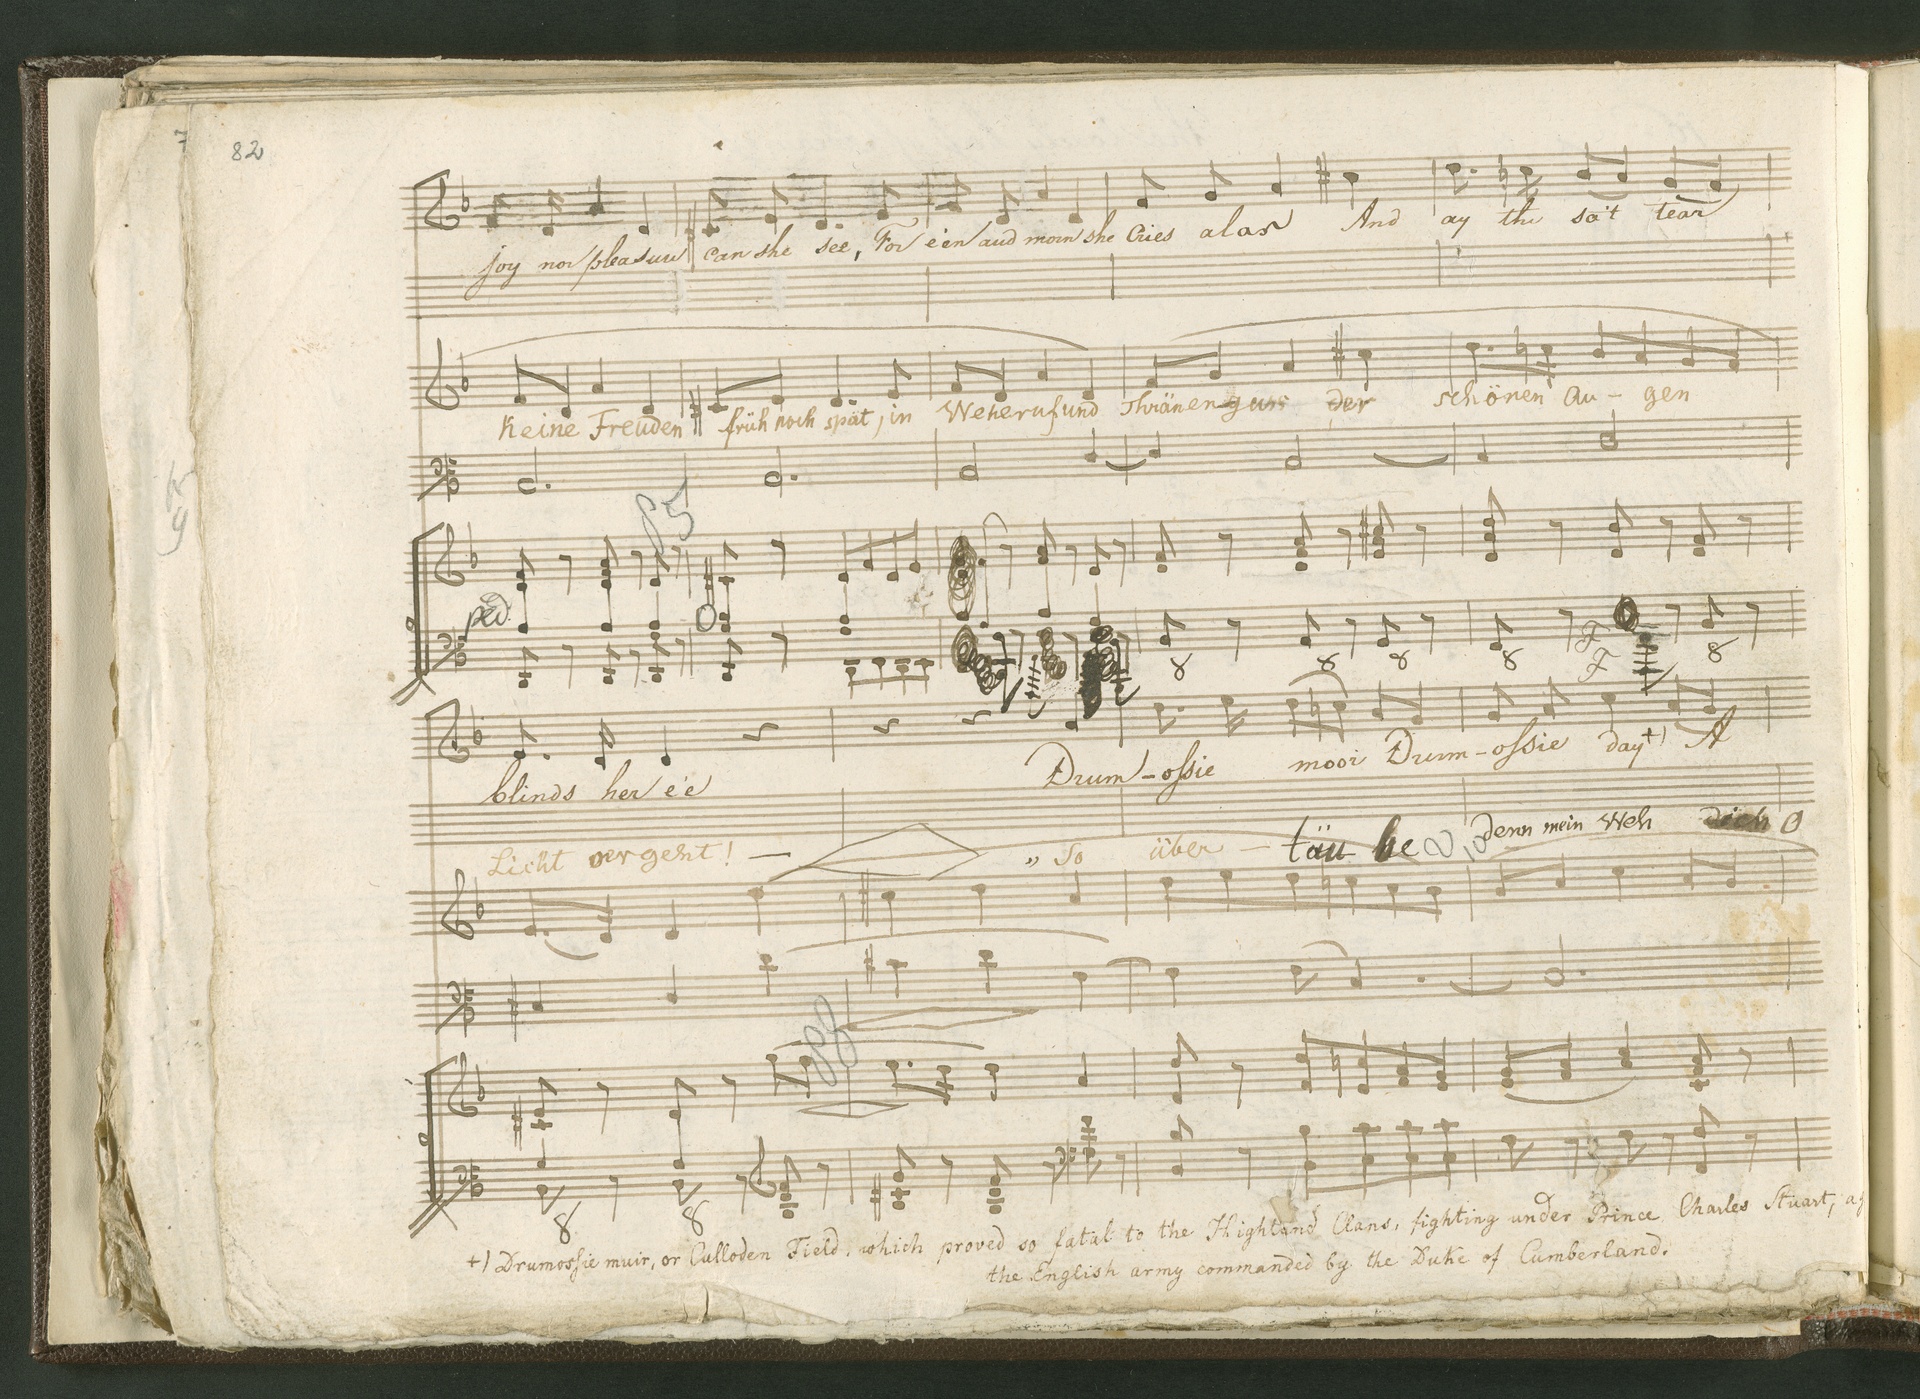 82
joy nor pleasure can she see, For e'en and morn she Cries alas And ay the sa't tear
Keine Freuden früh noch spät, in Weheruf und Thränenguss der schönen Au - gen
85
ped
8 8 8 8 8
blinds her e'e Drum - ossie moor Drum - ossie day +) A
Licht vergeht! — „ So über - täu be denn mein Weh dich O
88
8 8
+) Drumossie muir, or Culloden Field, which proved so fatal to the Highland Clans, fighting under Prince Charles Stuart, ag
the English army commanded by the Duke of Cumberland.